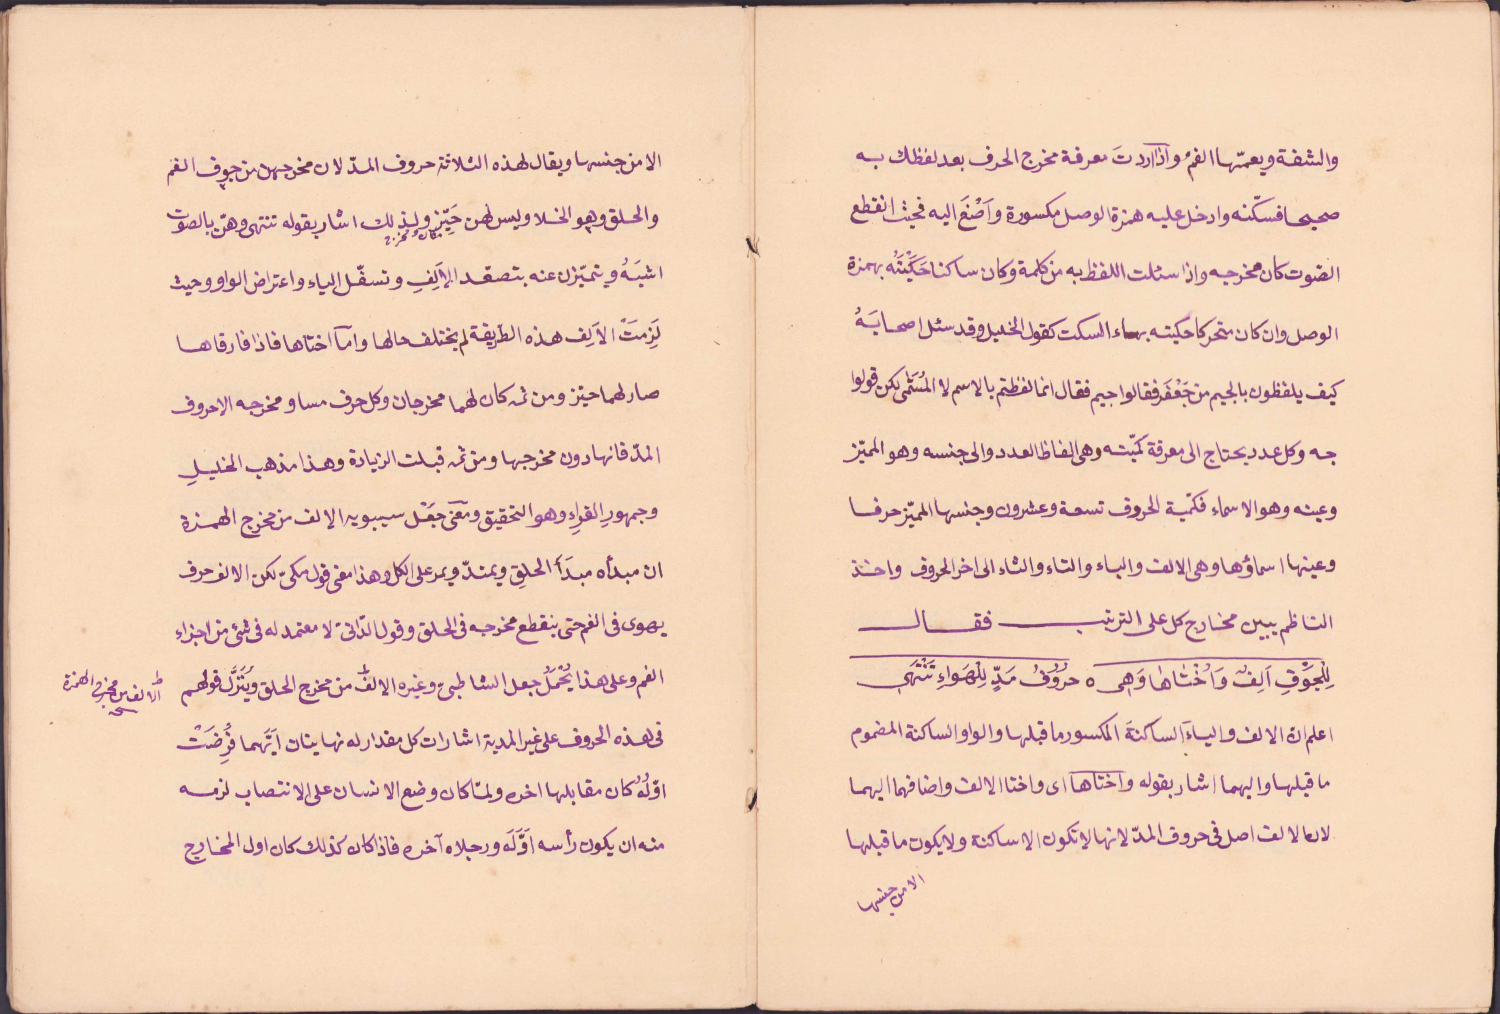 والشفة ويعمّها الفمُ واذا اردتَ معرفة مخرج الحرف بعد لفظك به
صحيحا فسكّنه وادخل عليه همزة الوصل مكسورة وَاَصْغَ اليه فحيث انقطع
الصوت كان مخرجه واذا سئلت اللفظ به من كلمة وكان ساكنا حَكَيْتَهُ بهمزة
الوصل وان كان متحركا حكيته بهاء السكت كقول الخليل وقد سئل اصحابَهُ
كيف يلفظون بالجيم من جَعْفَر فقالوا جيم فقال انما لفظتم بالاسم لا المُسَمّٰى لكن قولوا
جه وكل عدد يحتاج الى معرفة كميّته وهى الفاظ العدد والى جنسه وهو المميّز
وعينه وهو الاسماء فكمّية الحروف تسعة وعشرون وجنسها المميّز حرفا
وعينها اسماؤها وهى الالف والباء والتاء والثاء الى اخر الحروف واخذ
الناظم يبين مخارج كل على الترتيب فقال
لِلْجَوْفِ اَلِفٌ وَاُخْتَاهَا وَهِى ٥ حرُوُفُ مَدٍّ لِلْهَوَاءِ تَنْتَهِى
اعلم ان الالف والياءَ الساكنةَ المكسور ما قبلها والواو الساكنة المضموم
ما قبلها واليهما اشار بقوله واختاها اى واختا الالف واضافهما اليهما
لان الالف اصل فى حروف المدّ لانها لا تكون الا ساكنة ولا يكون ما قبلها
الا من جنسها
الا من جنسها ويقال لهذه الثلاثة حروف المدّ لان مخرجهن من جوف الفم
والحلق وهو الخلا وليس لهن حَيِّز ولذلك اشار بقوله تنتهى وهنّ بالصوت
اشبَهُ ويتميّزن عنه بتصعّد الاَلِفِ وتسفّل الياء واعتراض الواو وحيث
لَزِمَتْ الاَلِف هذه الطريقة لم يختلف حالها وامّا اختاها فاذا فارقاها
صار لهما حيّز ومن ثمه كان لهما مخرجان وكل حرف مساو مخرجه الا حروف
المدّ فانها دون مخرجها ومن ثمه قبلت الزيادة وهذا مذهب الخليلِ
وجمهورِ القراءِ وهو التحقيق ومعنى جَعْل سيبويه الالف من مخرج الهمزة
ان مبدأه مبدَأ الحلقِ ويمتدّ ويمر على الكل وهذا معنى قول مكىّ لكنّ الالف حرف
يهوى فى الفم حتى ينقطع مخرجه فى الحلق وقول الدّانىّ لا معتمد له فى شئ من اجزاء
الفم وعلى هذا يُحْمَلُ جعل الشاطبىّ وغيره الالف من مخرج الحلق وَيُنَزَّل قولهم
الالف من مخرج الهمزة
فى هذه الحروف على غير المدية اشارات كل مقدار له نهايتان اَيّهما فُرِضَتْ
اوّلُهُ كان مقابلها اخره ولمّا كان وضع الانسان على الانتصاب لزمه
منه ان يكون رأسه اَوَّلَه ورجلاه آخره فاذا كان كذلك كان اول المخارج